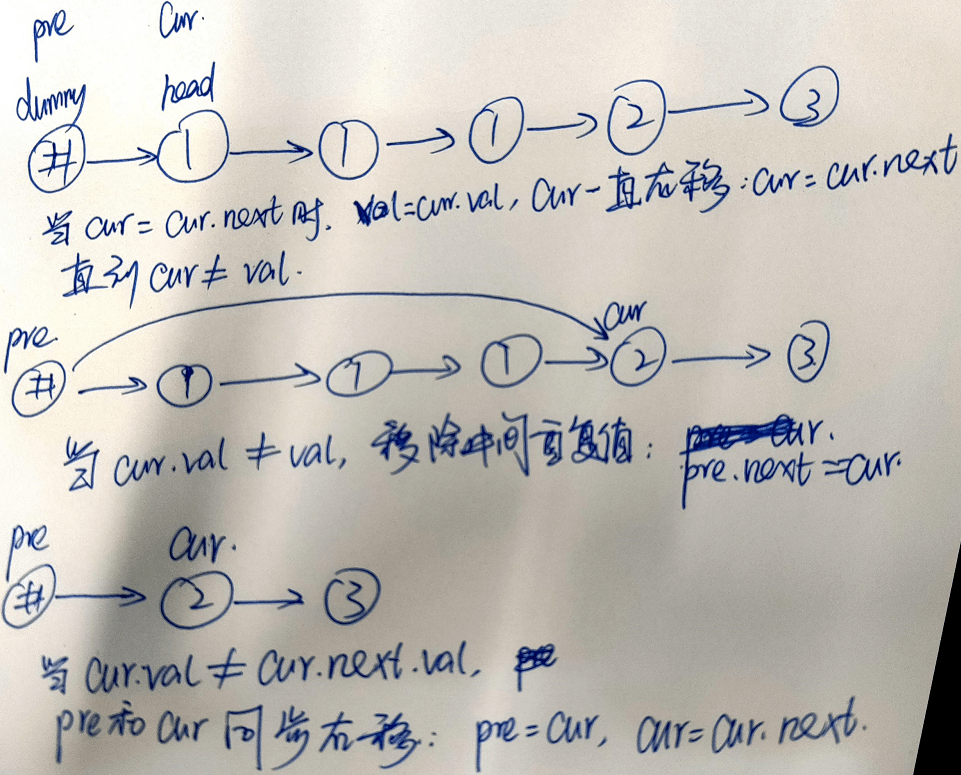 pre cur.
dummy head
# 1 1 1 2 3
当 cur = cur.next 时. val=cur.val, cur一直右移:cur = cur.next
直到 cur ≠ val.
pre. cur
# 1 1 1 2 3
当 cur.val ≠ val, 移除中间重复值:
pre.next = cur.
pre cur.
# 2 3
当 cur.val ≠ cur.next.val,
pre和 cur 同步右移: pre = cur, cur = cur.next.